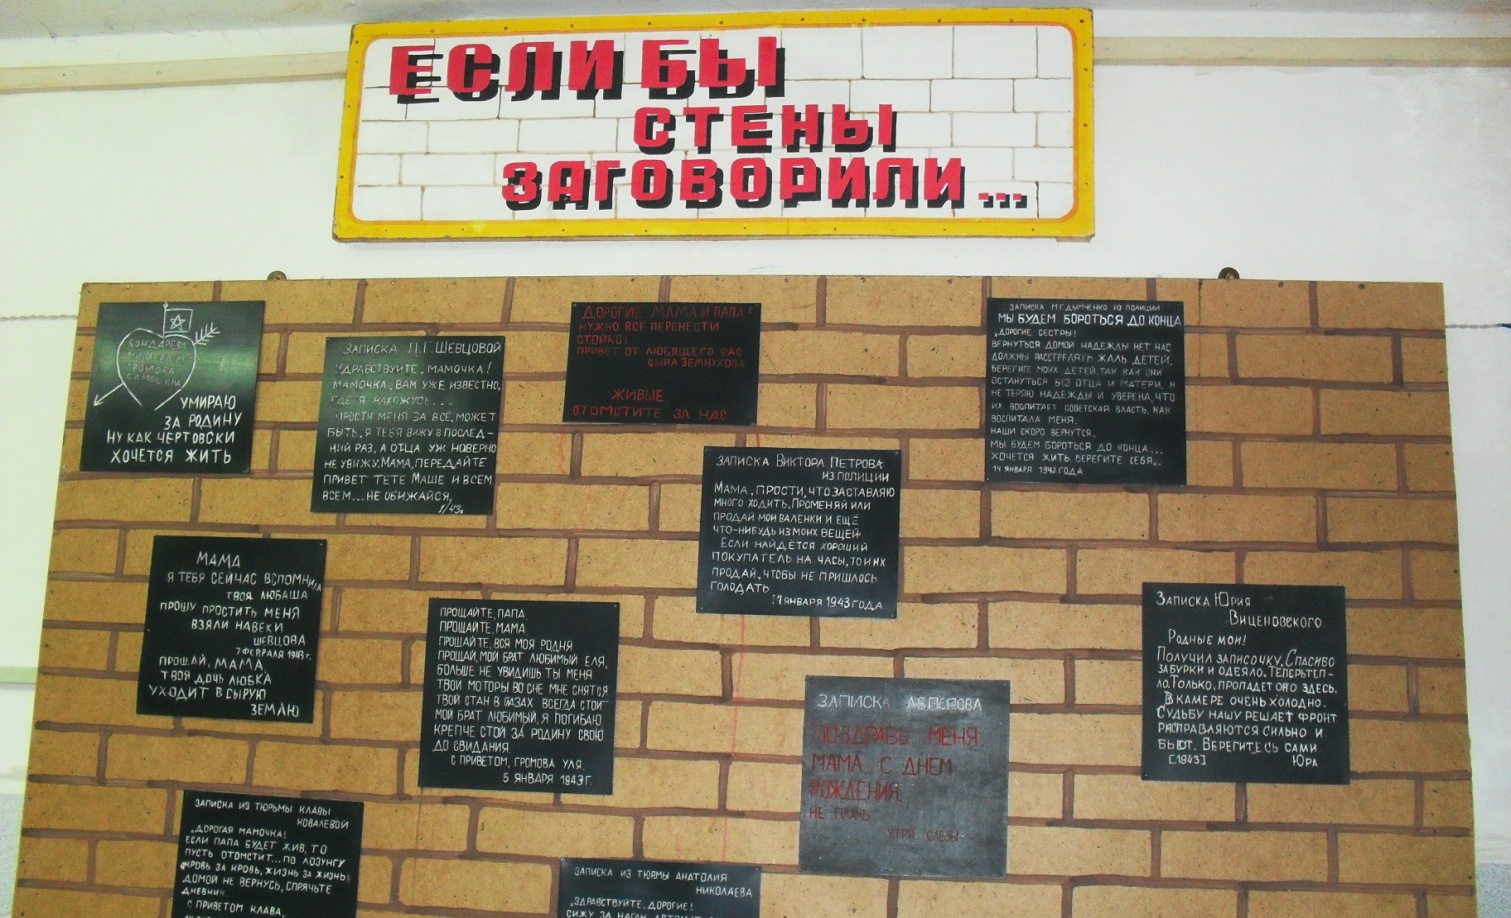 ЕСЛИ БЫ
СТЕНЫ
ЗАГОВОРИЛИ...
БОНДАРЕВА
МИНАЕВА
ГРОМОВА
САМОШИНА
УМИРАЮ
ЗА РОДИНУ
НУ КАК ЧЕРТОВСКИ
ХОЧЕТСЯ ЖИТЬ
ЗАПИСКА Л.Г.ШЕВЦОВОЙ
ЗДРАВСТВУЙТЕ, МАМОЧКА!
МАМОЧКА, ВАМ УЖЕ ИЗВЕСТНО,
ГДЕ Я НАХОЖУСЬ...
ПРОСТИ МЕНЯ ЗА ВСЕ, МОЖЕТ
БЫТЬ, Я ТЕБЯ ВИЖУ В ПОСЛЕД-
НИЙ РАЗ, А ОТЦА УЖ НАВЕРНО
НЕ УВИЖУ. МАМА, ПЕРЕДАЙТЕ
ПРИВЕТ ТЕТЕ МАШЕ И ВСЕМ
ВСЕМ... НЕ ОБИЖАЙСЯ,
ДОРОГИЕ МАМА И ПАПА!
НУЖНО ВСЕ ПЕРЕНЕСТИ
СТОЙКО!
ПРИВЕТ ОТ ЛЮБЯЩЕГО ВАС
СЫНА ЗЕМНУХОВА
ЖИВЫЕ,
ОТОМСТИТЕ ЗА НАС
ЗАПИСКА М.Г.ДЫМЧЕНКО ИЗ ПОЛИЦИИ
МЫ БУДЕМ БОРОТЬСЯ ДО КОНЦА
„ДОРОГИЕ СЕСТРЫ!
ВЕРНУТЬСЯ ДОМОЙ НАДЕЖДЫ НЕТ. НАС
ДОЛЖНЫ РАССТРЕЛЯТЬ. ЖАЛЬ ДЕТЕЙ.
БЕРЕГИТЕ МОИХ ДЕТЕЙ, ТАК КАК ОНИ
ОСТАНУТЬСЯ БЕЗ ОТЦА И МАТЕРИ. Я
НЕ ТЕРЯЮ НАДЕЖДЫ И УВЕРЕНА, ЧТО
ИХ ВОСПИТАЕТ СОВЕТСКАЯ ВЛАСТЬ, КАК
ВОСПИТАЛА МЕНЯ.
НАШИ СКОРО ВЕРНУТСЯ.
МЫ БУДЕМ БОРОТЬСЯ ДО КОНЦА...
ХОЧЕТСЯ ЖИТЬ. БЕРЕГИТЕ СЕБЯ„.
14 ЯНВАРЯ 1943 ГОДА
ЗАПИСКА ВИКТОРА ПЕТРОВА
ИЗ ПОЛИЦИИ
МАМА, ПРОСТИ, ЧТО ЗАСТАВЛЯЮ
МНОГО ХОДИТЬ. ПРОМЕНЯЙ ИЛИ
ПРОДАЙ МОИ ВАЛЕНКИ И ЕЩЁ
ЧТО-НИБУДЬ ИЗ МОИХ ВЕЩЕЙ.
ЕСЛИ НАЙДЁТСЯ ХОРОШИЙ
ПОКУПАТЕЛЬ НА ЧАСЫ, ТО И ИХ
ПРОДАЙ, ЧТОБЫ НЕ ПРИШЛОСЬ
ГОЛОДАТЬ.
ЯНВАРЯ 1943 ГОДА
МАМА
Я ТЕБЯ СЕЙЧАС ВСПОМНИЛА
ТВОЯ ЛЮБАША
ПРОШУ ПРОСТИТЬ МЕНЯ
ВЗЯЛИ НАВЕКИ
ШЕВЦОВА
7 ФЕВРАЛЯ 1943 г.
ПРОЩАЙ, МАМА,
ТВОЯ ДОЧЬ ЛЮБКА
УХОДИТ В СЫРУЮ
ЗЕМЛЮ
ПРОЩАЙТЕ, ПАПА
ПРОЩАЙТЕ, МАМА
ПРОЩАЙТЕ, ВСЯ МОЯ РОДНЯ
ПРОЩАЙ, МОЙ БРАТ ЛЮБИМЫЙ ЕЛЯ,
БОЛЬШЕ НЕ УВИДИШЬ ТЫ МЕНЯ
ТВОИ МОТОРЫ ВО СНЕ МНЕ СНЯТСЯ
ТВОЙ СТАН В ГЛАЗАХ ВСЕГДА СТОИТ
МОЙ БРАТ ЛЮБИМЫЙ, Я ПОГИБАЮ
КРЕПЧЕ СТОЙ ЗА РОДИНУ СВОЮ
ДО СВИДАНИЯ.
С ПРИВЕТОМ, ГРОМОВА УЛЯ.
5 ЯНВАРЯ 1943 Г.
ЗАПИСКА ЮРИЯ
ВИЦЕНОВСКОГО
РОДНЫЕ МОИ!
ПОЛУЧИЛ ЗАПИСОЧКУ. СПАСИБО
ЗАБУРКИ И ОДЕЯЛО. ТЕПЕРЬ ТЕП-
ЛО. ТОЛЬКО, ПРОПАДЕТ ОНО ЗДЕСЬ.
В КАМЕРЕ ОЧЕНЬ ХОЛОДНО.
СУДЬБУ НАШУ РЕШАЕТ ФРОНТ
РАСПРАВЛЯЮТСЯ СИЛЬНО И
БЬЮТ. БЕРЕГИТЕСЬ САМИ
[1943] ЮРА
ЗАПИСКА
ПОЗДРАВЬ МЕНЯ,
МАМА, С ДНЕМ
РОЖДЕНИЯ
НЕ ПЛАЧЬ
УТРИ СЛЕЗЫ.
ЗАПИСКА ИЗ ТЮРЬМЫ КЛАВЫ
КОВАЛЕВОЙ
„ДОРОГАЯ МАМОЧКА!
ЕСЛИ ПАПА БУДЕТ ЖИВ, ТО
ПУСТЬ ОТОМСТИТ... ПО ЛОЗУНГУ
КРОВЬ ЗА КРОВЬ, ЖИЗНЬ ЗА ЖИЗНЬ.
ДОМОЙ НЕ ВЕРНУСЬ, СПРЯЧЬТЕ
ДНЕВНИК.
С ПРИВЕТОМ КЛАВА„
ЗАПИСКА ИЗ ТЮРМЫ АНАТОЛИЯ
НИКОЛАЕВА
„ЗДРАВСТВУЙТЕ, ДОРОГИЕ!
СИЖУ ЗА НАГАН